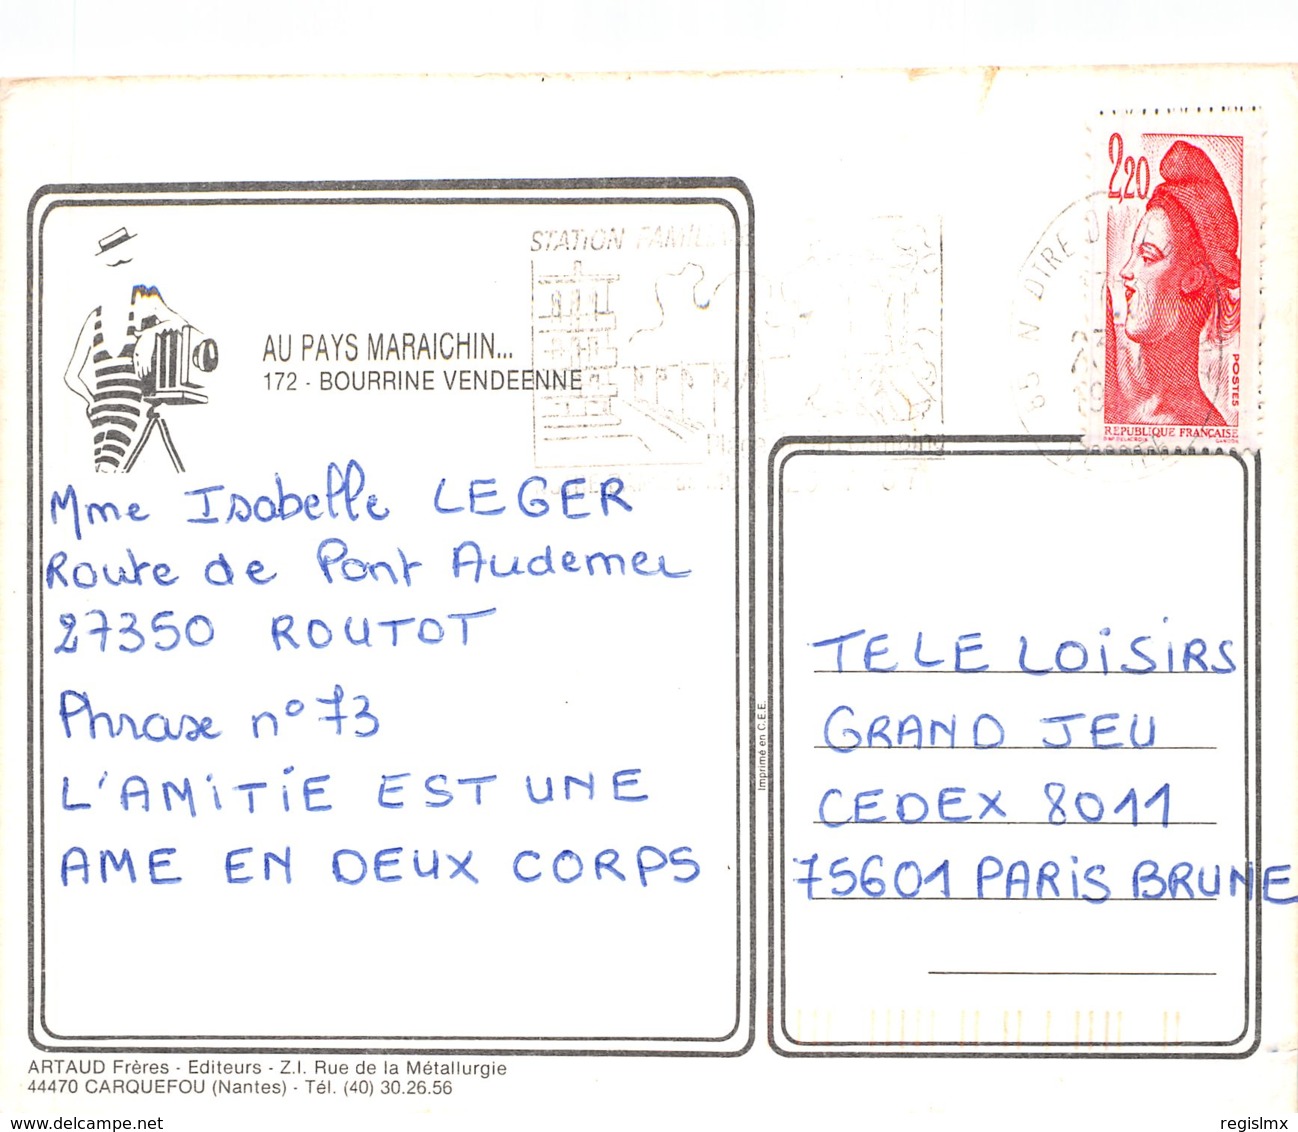 2,20
POSTES
REPUBLIQUE FRANÇAISE
STATION
N DTRE D
AU PAYS MARAICHIN...
172 - BOURRINE VENDEENNE
Mme Isabelle LEGER
Route de Pont Audemer
27350 ROUTOT
Phrase n° 73
L'AMiTiE EST UNE
AME EN DEUX CORPS
Imprimé en C.E.E.
TELE LOiSiRS
GRAND JEU
CEDEX 8011
75601 PARiS BRUNE
ARTAUD Frères - Editeurs - Z.I. Rue de la Métallurgie
44470 CARQUEFOU (Nantes) - Tél. (40) 30.26.56
delcampe.net
regislmx